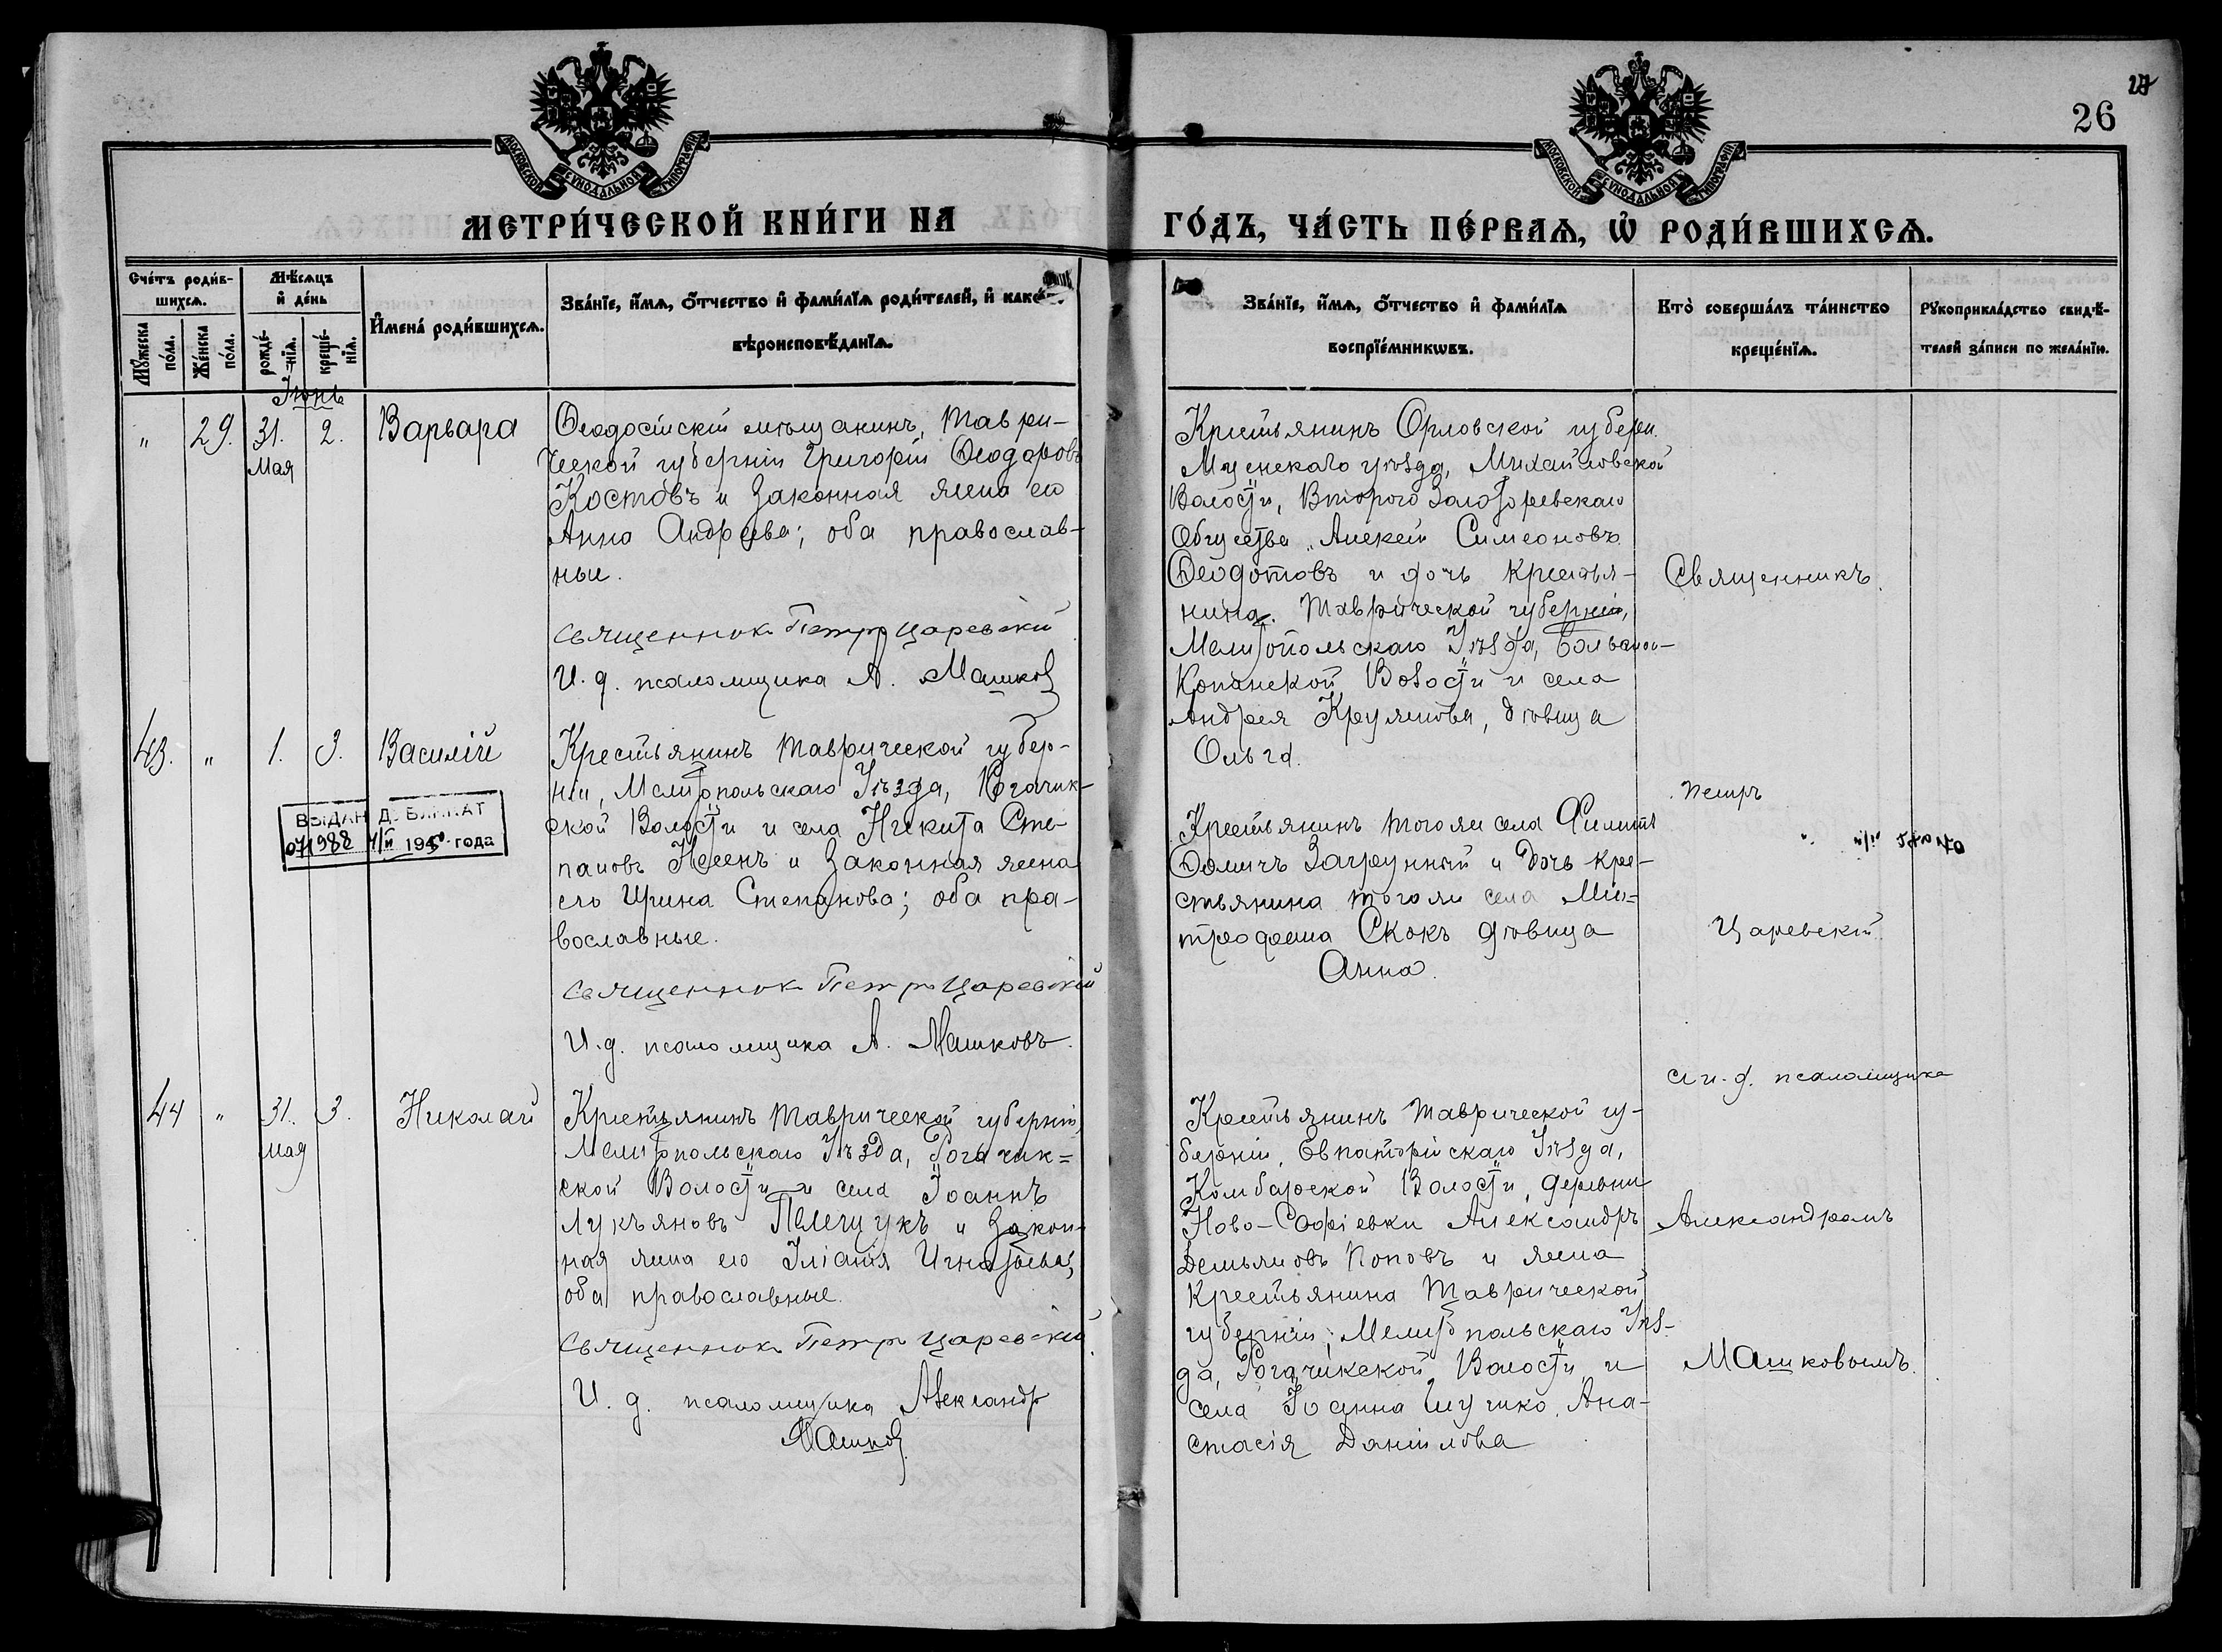 27
26
МОСКОВСКОЙ СѴНОДАЛЬНОЙ ТИПОГРАФІИ
МОСКОВСКОЙ СѴНОДАЛЬНОЙ ТИПОГРАФІИ
МЕТРИ́ЧЕСКОЙ КНИ́ГИ НА
ГО́ДЪ, ЧА́СТЬ ПЕ́РВАѦ, Ѡ҆ РОДИ́ВШИХСѦ.
Сче́тъ роди́в-
шихсѧ.
Мѣ́сяцъ
и҆ де́нь
Мꙋ́жеска
по́ла.
Же́нска
по́ла.
рожде́-
нїѧ.
креще́-
нїѧ.
И҆мена̀ роди́вшихсѧ.
Зва́нїе, и҆́мѧ, ѻ҆́тчество и҆ фами́лїѧ роди́телей, и҆ како́
вѣроисповѣ́данїѧ.
Зва́нїе, и҆́мѧ, ѻ҆́тчество и҆ фами́лїѧ
воспрїе́мникѡвъ.
Кто̀ соверша́лъ та́инство
креще́нїѧ.
Рꙋкоприкла́дство свидѣ́-
телей за́писи по жела́нїю.
Іюнь
" 29. 31. 2. Варвара
Мая
Ѳеодосійскій мѣщанинъ, Таври-
ческой губерніи Григорій Ѳеодоровъ
Костовъ и законная жена его
Анна Андреева; оба православ-
ные.
Священникъ Петръ Царевскій
И. д. псаломщика А. Машковъ
Крестьянинъ Орловской губерн.
Мценскаго уѣзда, Михайловской
Волости, Второго
Общества Алексѣй Симеоновъ
Ѳеодотовъ и дочь крестья-
нина Таврической губерніи,
Мелитопольскаго Уѣзда,
Копанской Волости и села
Андрея дѣвица
Ольга.
43. " 1. 3. Василій
Крестьянинъ Таврической губер-
ніи, Мелитопольскаго Уѣзда, Рогачик-
ской Волости и села Никита Сте-
пановъ и законная жена
его Ирина Степанова; оба пра-
вославные.
Священникъ Петръ Царевскій
И. д. псаломщика А. Машковъ.
ВЫДАН ДУБЛИКАТ
071988 195 года
Крестьянинъ того же села Филиппъ
Загрунный и дочь кре-
стьянина того же села Ми-
трофана Скокъ дѣвица
Анна.
44 " 31. 3. Николай
Мая
Крестьянинъ Таврической губерніи
Мелитопольскаго Уѣзда, Рогачик=
ской Волости и села Іоаннъ
Лукьяновъ и закон-
ная жена его Іуліанія Игнатьева;
оба православные.
Священникъ Петръ Царевскій
И. д. псаломщика Александръ
Машковъ
Крестьянинъ Таврической гу-
берніи, Евпаторійскаго Уѣзда,
Волости, деревни
Ново-Софіевки Александръ
Демьяновъ Поповъ и жена
Крестьянина Таврической
губерніи, Мелитопольскаго Уѣз-
да, Рогачикской Волости и
села Іоанна Шучко, Ана-
стасія Даніилова
Священникъ
Петръ
Царевскій
и. д. псаломщика
Александромъ
Машковымъ.